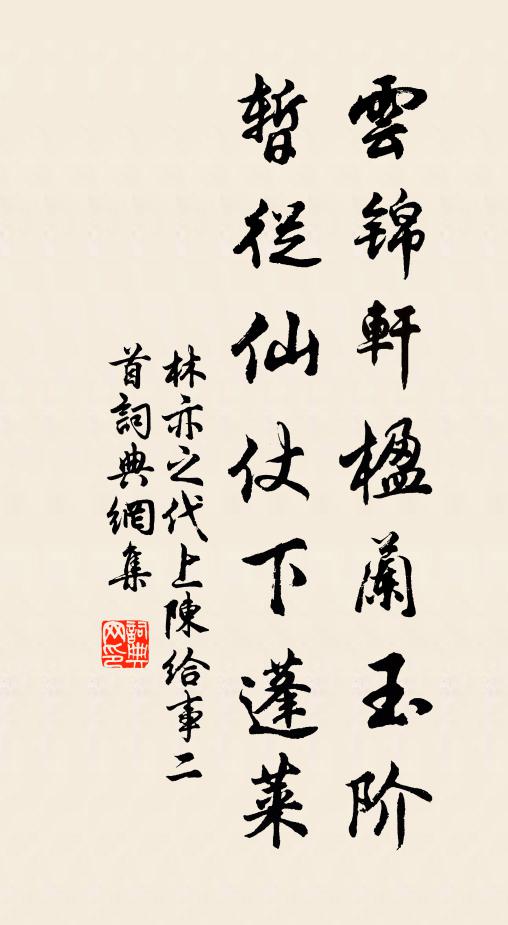 雲锦軒楹蘭玉阶
暫從仙仗下蓬萊
林亦之代上陳给事二
首詞典網集
詞典
网印